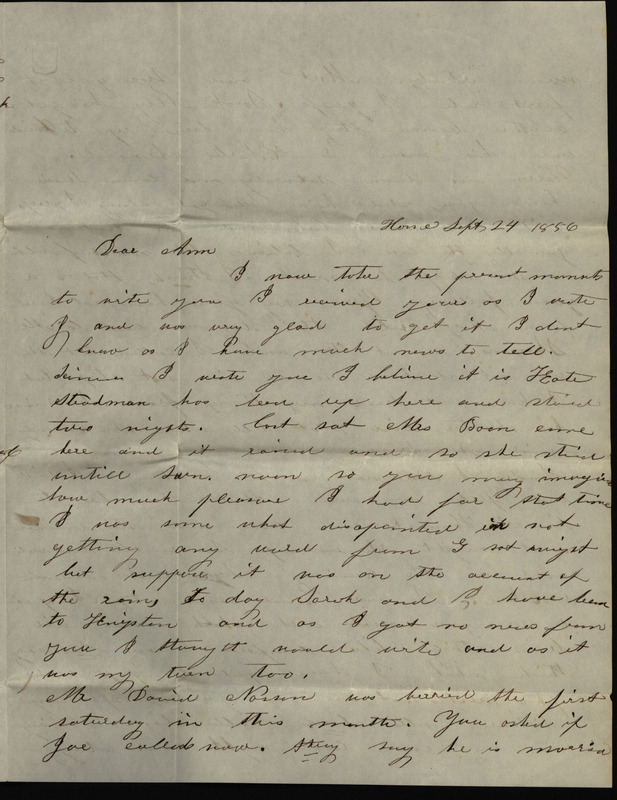 Home Sept, 24 1856
Dear Ann
I now take the present moments
to write you I recived yours as I wrote
J and was very glad to get it I dont
know as I have much news to tell.
since I wrote you I belive it is Kate
Steadman has been up here and staied
two nights. last sat Mrs Boon came
here and it rained and so she staid
untill sun. noon so you may imagin
how much pleasure I had for that time
I was some what disapointed in not
getting any word from G sat night
but suppose it was on the account of
the rain, To day Sarah and I have been
to Kingston and as I got no news from
you I thought would write and as it
was my turn too.
Mr David Nasson was burried the first
saturday in this month. You asked if
Joe called now. they say he is married